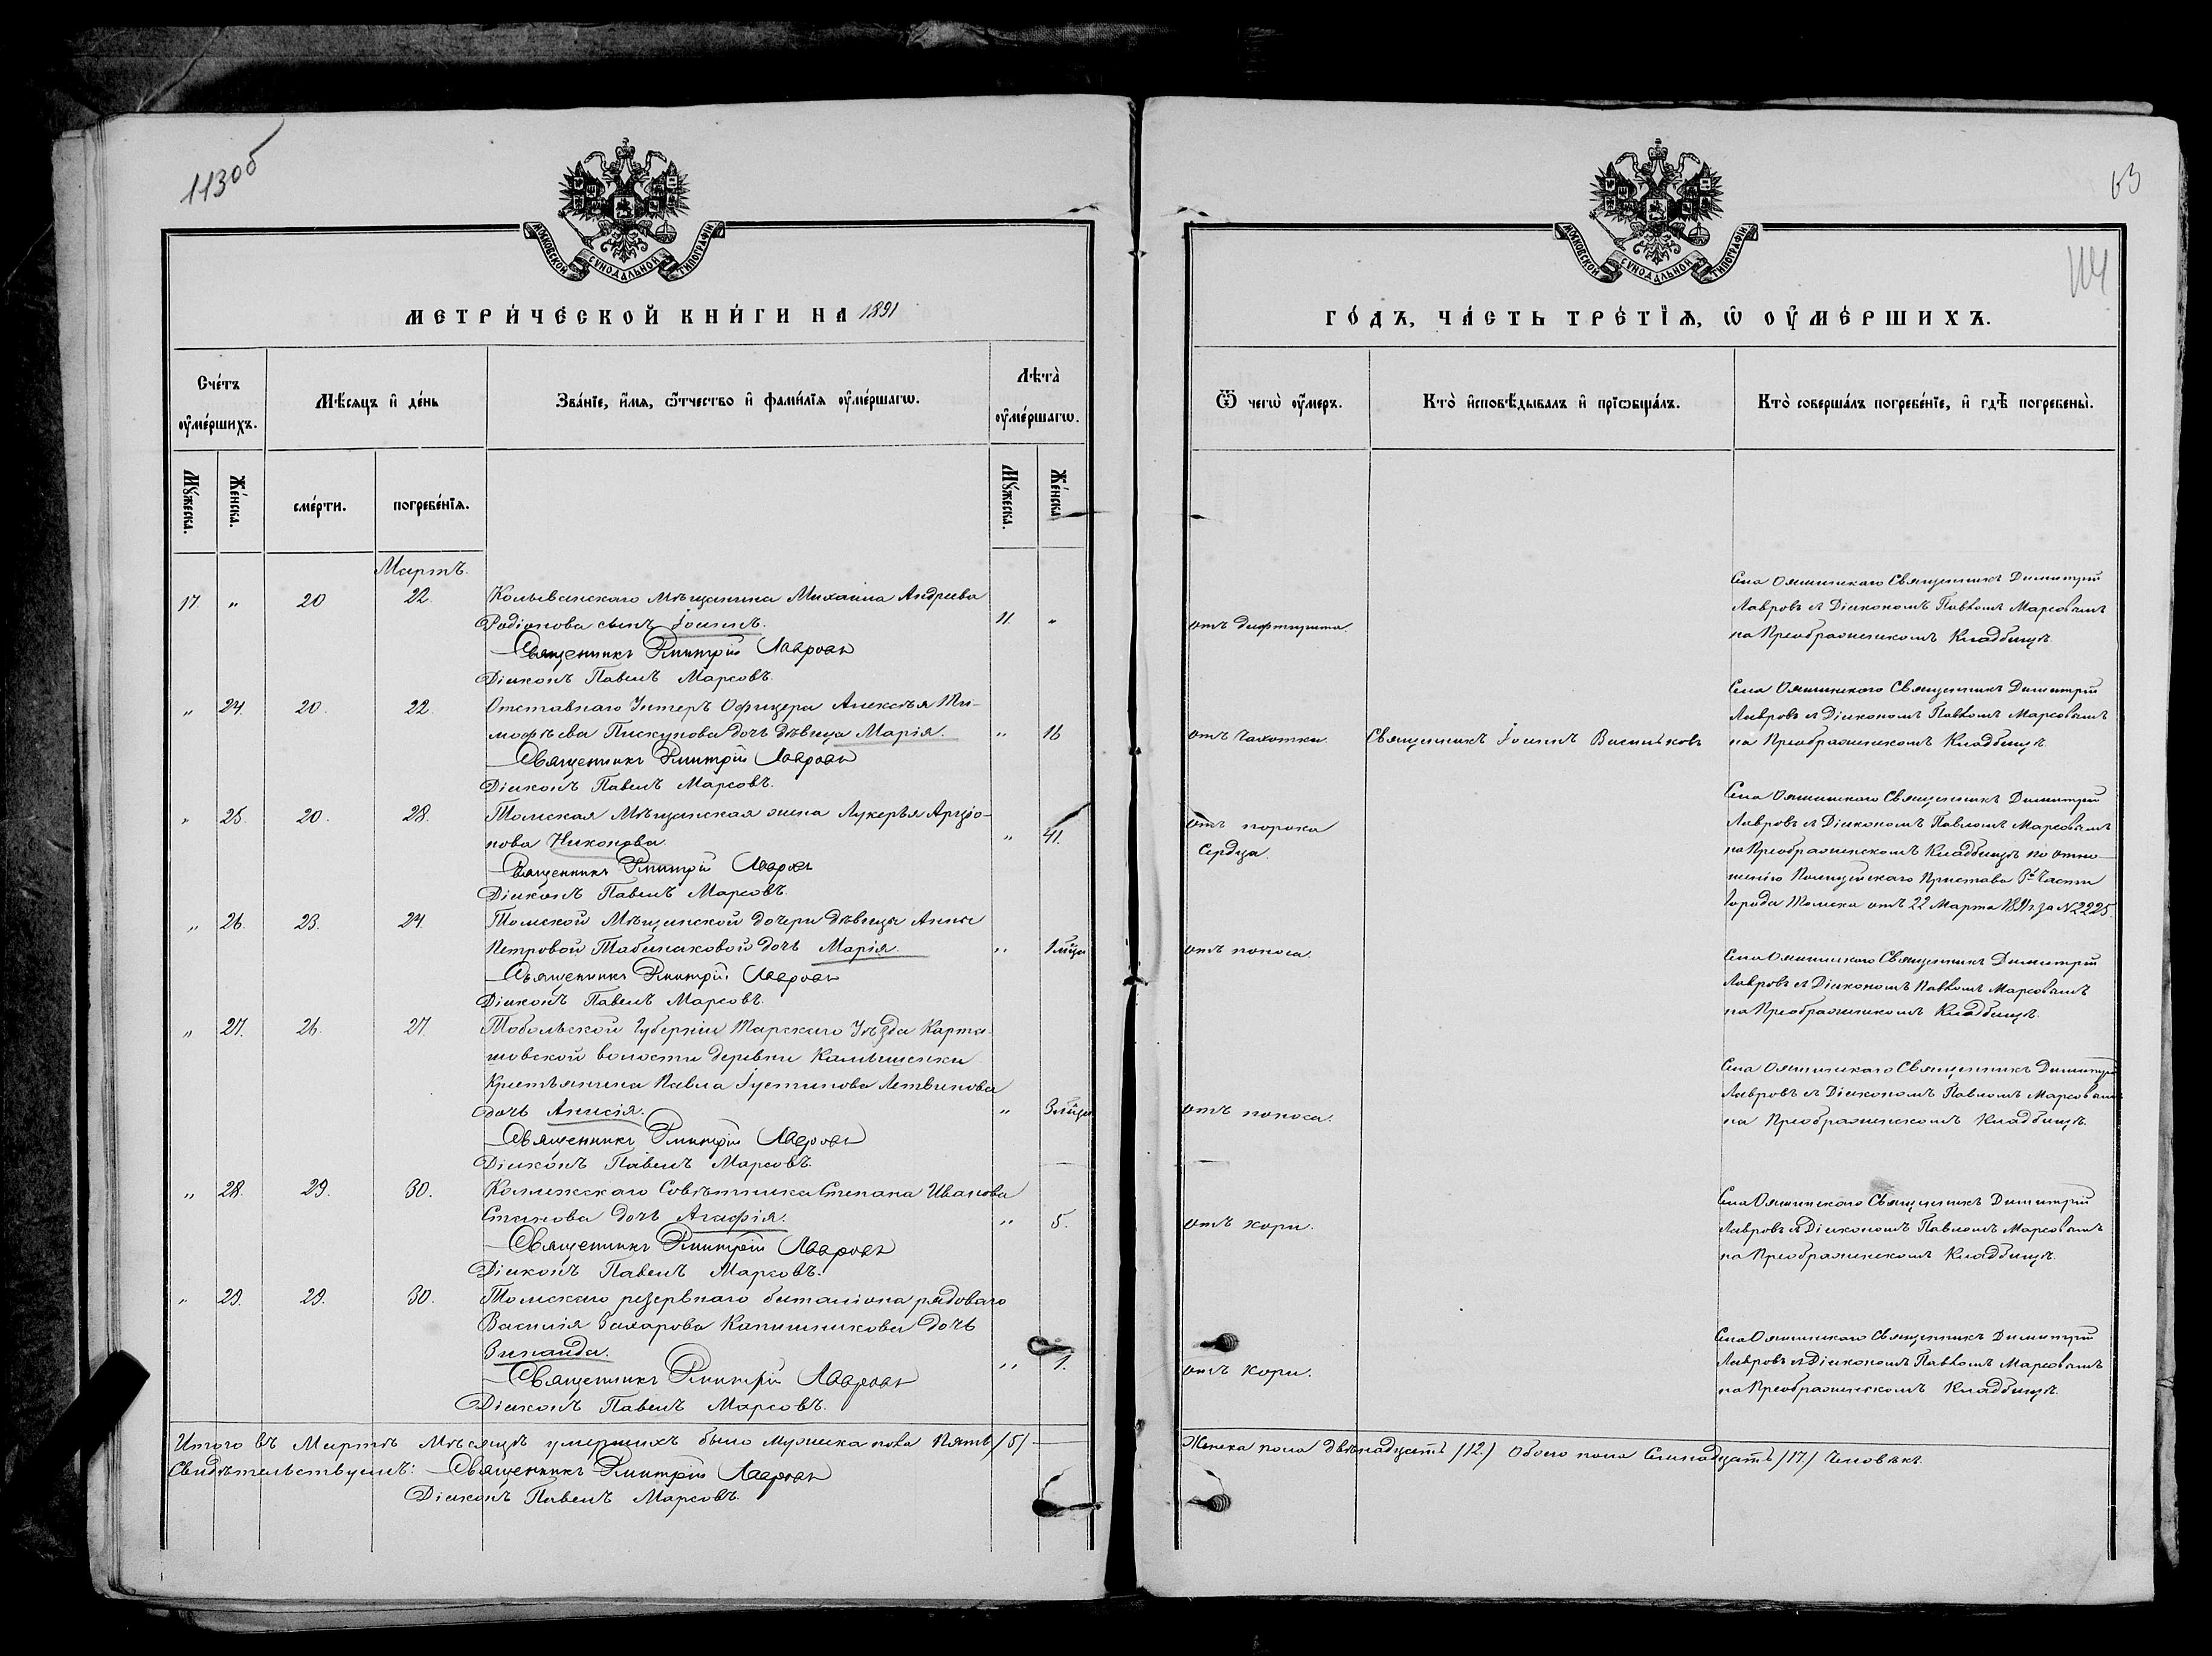 113об
МОСКОВСКОЙ СѴНОДАЛЬНОЙ ТИПОГРАФІИ
МЕТРИЧЕСКОЙ КНИГИ НА 1891
Счетъ умершихъ.
Мѣсяцъ и день
Званіе, имя, отчество и фамилія умершаго.
Лѣта умершаго.
Мужеска.
Женска.
смерти.
погребенія.
Мужеска.
Женска.
Мартъ.
17. " 20 22. Колыванскаго мѣщанина Михаила Андреева
Родіонова сынъ Іоаннъ. 11. "
Священникъ Димитрій Лавровъ
Діаконъ Павелъ Марсовъ.
" 24. 20. 22. Отставнаго Унтеръ Офицера Алексѣя Ти-
мофѣева Пискунова дочь дѣвица Марія. " 16
Священникъ Димитрій Лавровъ
Діаконъ Павелъ Марсовъ.
" 25. 20. 28. Томская Мѣщанская жена Лукерья
нова Никонова. " 41.
Священникъ Димитрій Лавровъ
Діаконъ Павелъ Марсовъ.
" 26. 23. 24. Томской Мѣщанской дочери дѣвицы Анны
Петровой дочь Марія. " 1 мѣца
Священникъ Димитрій Лавровъ
Діаконъ Павелъ Марсовъ.
" 27. 26. 27. Тобольской Губерніи Тарскаго Уѣзда Карта-
шовской волости деревни Камышенки
Крестьянина Павла Іустинова Летвинова
дочь Анисія. " 3 мѣца
Священникъ Димитрій Лавровъ
Діаконъ Павелъ Марсовъ.
" 28. 29. 30. Коллежскаго Совѣтника Степана Иванова
Стахова дочь Агафія. " 5.
Священникъ Димитрій Лавровъ
Діаконъ Павелъ Марсовъ.
" 29. 29. 30. Томскаго резервнаго баталіона рядоваго
Василія Захарова Капишникова дочь
Зинаида. " 1.
Священникъ Димитрій Лавровъ
Діаконъ Павелъ Марсовъ.
Итого въ Мартѣ Мѣсяцѣ умершихъ было мужеска пола Пять /5/
Свидѣтельствуемъ: Священникъ Димитрій Лавровъ
Діаконъ Павелъ Марсовъ.
63
114
МОСКОВСКОЙ СѴНОДАЛЬНОЙ ТИПОГРАФІИ
ГОДЪ, ЧАСТЬ ТРЕТІЯ, Ѡ УМЕРШИХЪ.
Ѿ чего умеръ.
Кто исповѣдывалъ и пріобщалъ.
Кто совершалъ погребеніе, и гдѣ погребены.
Села Ояшинскаго Священникъ Димитрій
Лавровъ съ Діакономъ Павломъ Марсовымъ
отъ дифтерита.
на Преображенскомъ Кладбищѣ.
Села Ояшинскаго Священникъ Димитрій
Лавровъ съ Діакономъ Павломъ Марсовымъ
отъ Чахотки. Священникъ Іоаннъ Васильковъ на Преображенскомъ Кладбищѣ.
Села Ояшинскаго Священникъ Димитрій
отъ порока Лавровъ съ Діакономъ Павломъ Марсовымъ
Сердца. на Преображенскомъ Кладбищѣ по отно-
шенію Полицейскаго Пристава Части
города Томска отъ 22 Марта 1891 г. за №2225.
отъ поноса. Села Ояшинскаго Священникъ Димитрій
Лавровъ съ Діакономъ Павломъ Марсовымъ
на Преображенскомъ Кладбищѣ.
Села Ояшинскаго Священникъ Димитрій
Лавровъ съ Діакономъ Павломъ Марсовымъ
отъ поноса. на Преображенскомъ Кладбищѣ.
Села Ояшинскаго Священникъ Димитрій
отъ кори. Лавровъ съ Діакономъ Павломъ Марсовымъ
на Преображенскомъ Кладбищѣ.
Села Ояшинскаго Священникъ Димитрій
отъ кори. Лавровъ съ Діакономъ Павломъ Марсовымъ
на Преображенскомъ Кладбищѣ.
Женска пола двѣнадцать /12./ Обоего пола Семнадцать /17./ Человѣкъ.